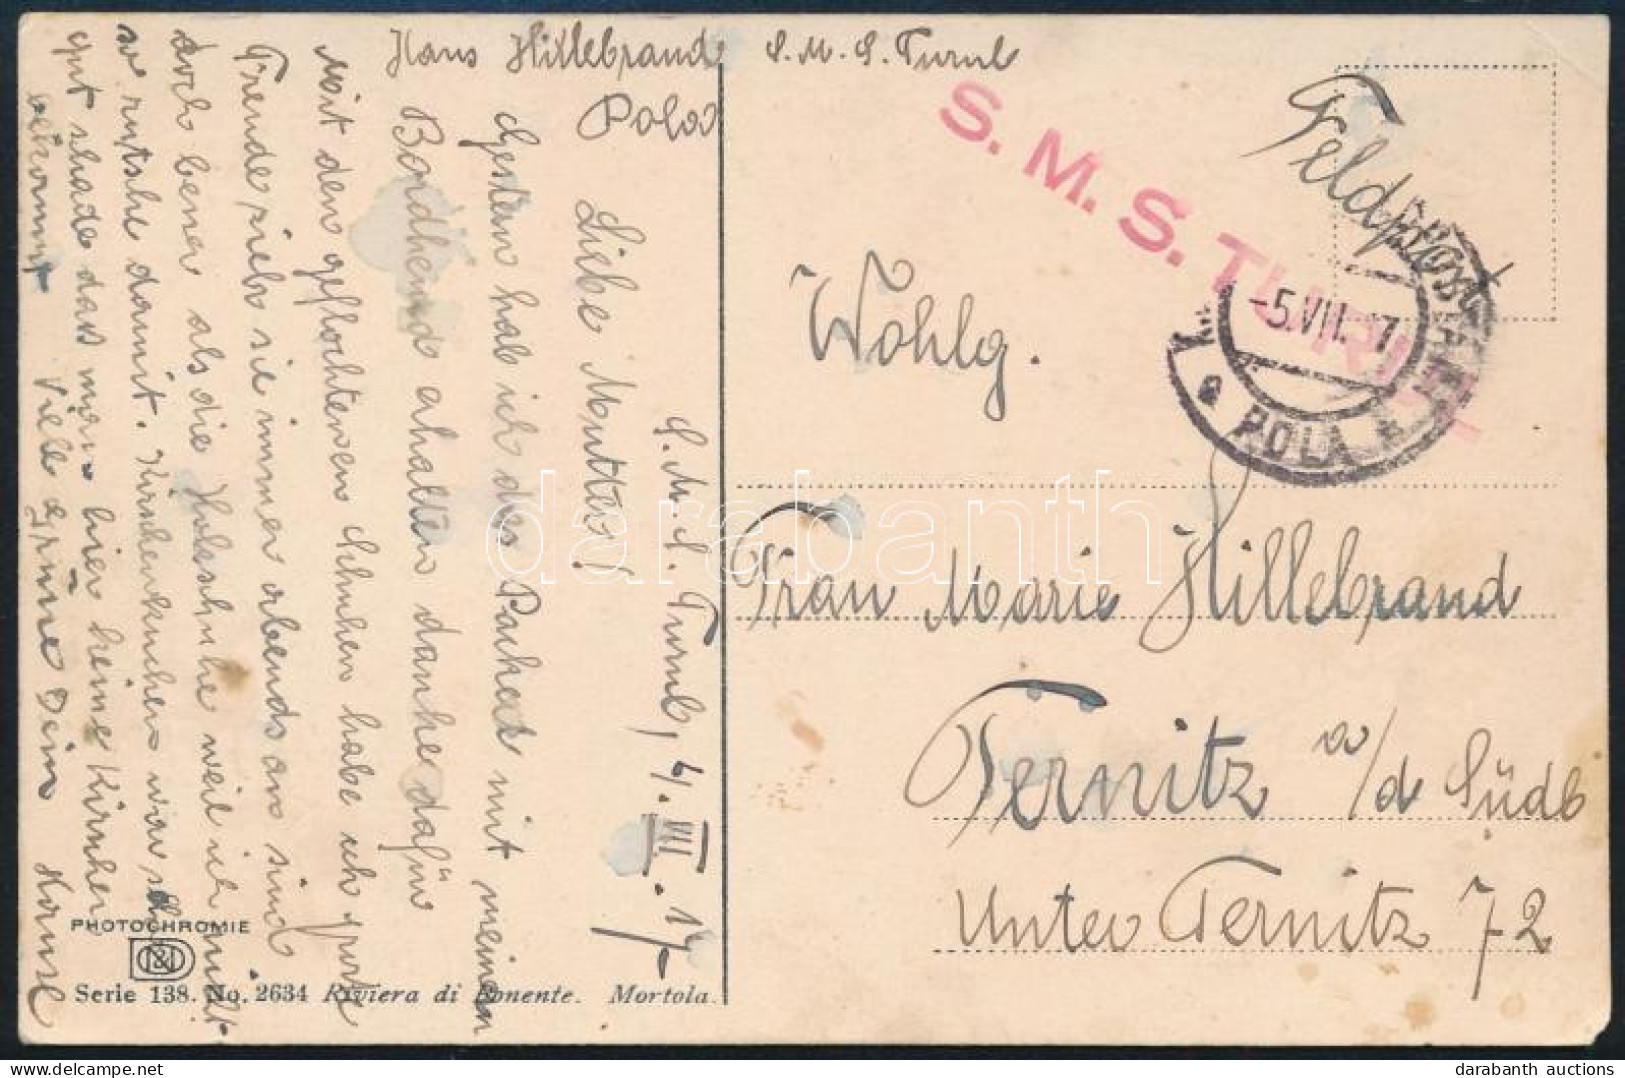 Hans Hillebrand S. M. S. Turul
Pola
S. M. S. Turul, 4. VII. 17
Liebe Mutter!
Gestern hab ich das Packet mit meinen
Bardhemd erhalten danke dafür
Mit den geflochtenen Schuhen habe ich große
Freude ziehe sie immer abends an sind
doch besser als die Holzschuhe weil ich nicht
so rutsche damit. Kirschenkuchen war sehr
gut schade das man hier keine Kirschen
bekommt Viele Grüße Dein Hansl
PHOTOCHROMIE
Serie 138. No. 2634 Riviera di Ponente. Mortola.
Feldpost
S. M. S. TURUL
-5.VII.17
a POLA *
Wohlg.
Frau Marie Hillebrand
Ternitz a/d Südb
Unter Ternitz 72
darabanth
darabanth auctions